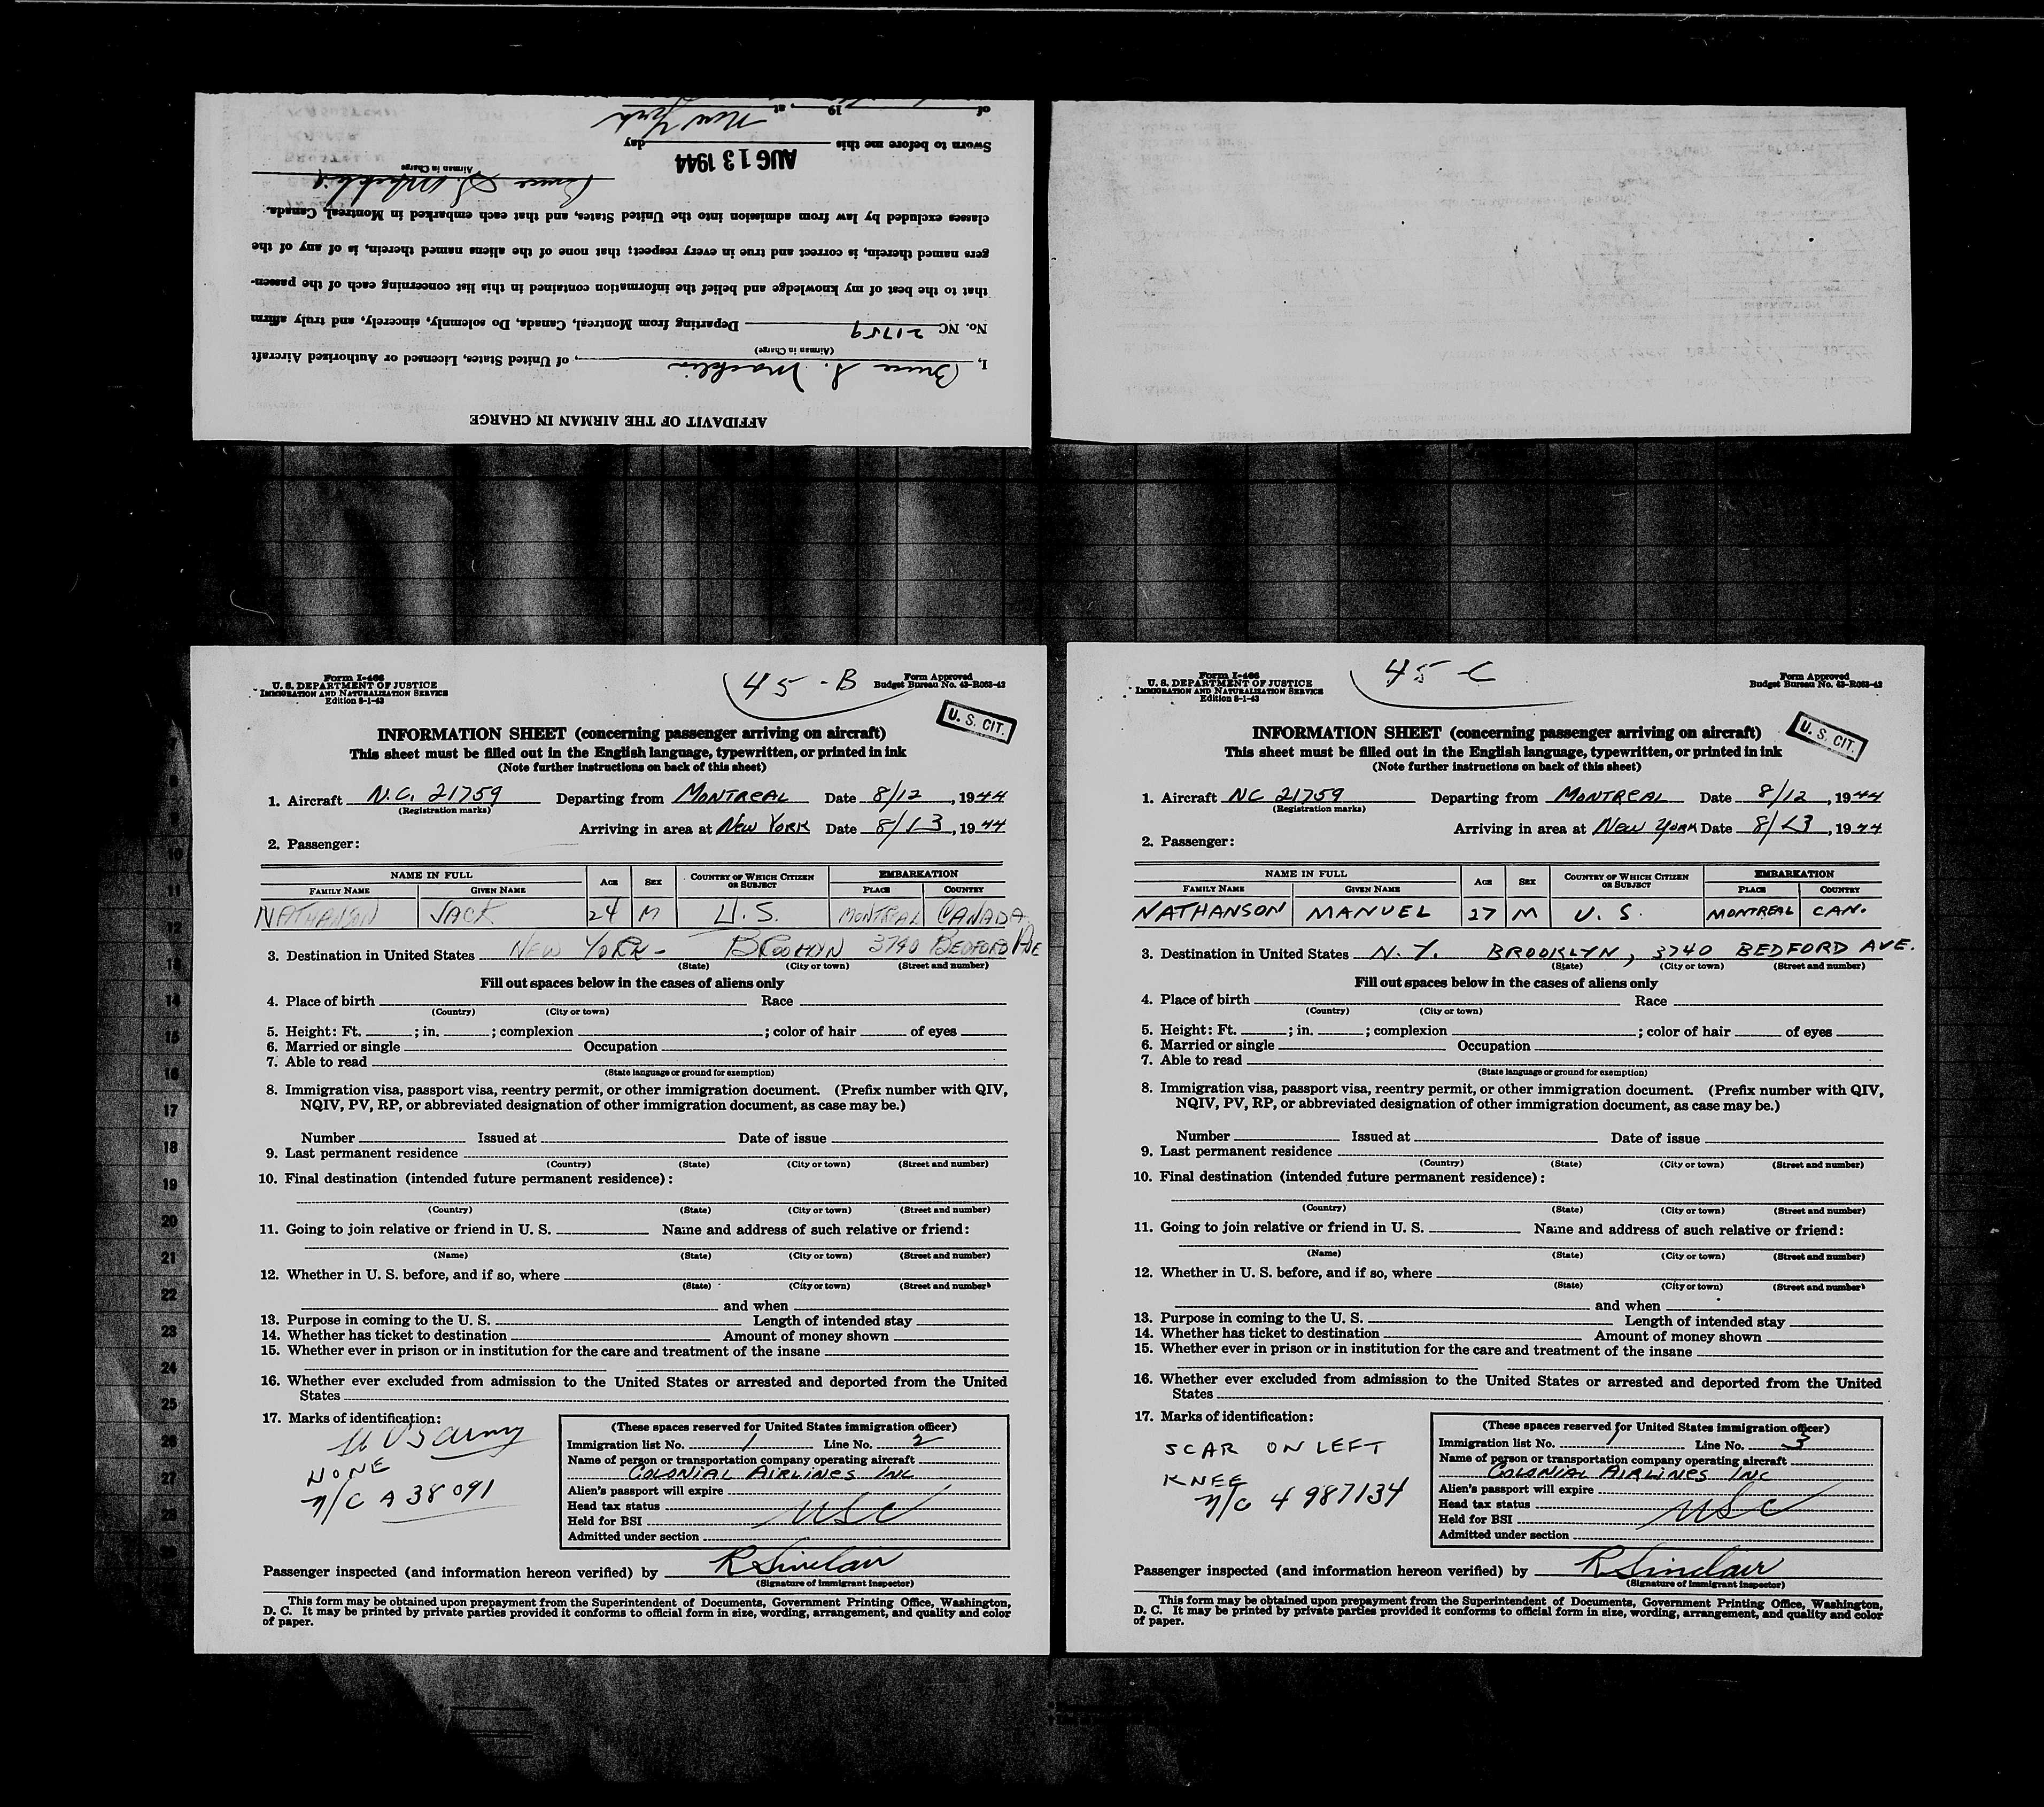 AFFIDAVIT OF THE AIRMAN IN CHARGE
I, Bruce S. , of United States, Licensed or Authorized Aircraft
(Airman in Charge)
No. NC 21759 Departing from Montreal, Canada, Do solemnly, sincerely, and truly affirm
that to the best of my knowledge and belief the information contained in this list concerning each of the passen-
gers named therein, is correct and true in every respect; that none of the aliens named therein, is of any of the
classes excluded by law from admission into the United States, and that each embarked in Montreal, Canada.
Bruce S.
Airman in Charge
AUG 13 1944
Sworn to before me this day
New York
of 19 , at
Form I-466
U. S. DEPARTMENT OF JUSTICE
IMMIGRATION AND NATURALIZATION SERVICE
Edition 8-1-43
45-B
Form Approved
Budget Bureau No. 43-R063-42
U. S. CIT.
INFORMATION SHEET (concerning passenger arriving on aircraft)
This sheet must be filled out in the English language, typewritten, or printed in ink
(Note further instructions on back of this sheet)
1. Aircraft N.C. 21759 Departing from MONTREAL Date 8/12, 1944
(Registration marks)
Arriving in area at NEW YORK Date 8/13, 1944
2. Passenger:
NAME IN FULL AGE SEX COUNTRY OF WHICH CITIZEN OR SUBJECT EMBARKATION
FAMILY NAME GIVEN NAME PLACE COUNTRY
NATHANSON JACK 24 M U.S. MONTREAL CANADA
3. Destination in United States NEW YORK - BROOKLYN 3740 BEDFORD AVE
(State) (City or town) (Street and number)
Fill out spaces below in the cases of aliens only
4. Place of birth Race
(Country) (City or town)
5. Height: Ft. ; in. ; complexion ; color of hair of eyes
6. Married or single Occupation
7. Able to read
(State language or ground for exemption)
8. Immigration visa, passport visa, reentry permit, or other immigration document. (Prefix number with QIV,
NQIV, PV, RP, or abbreviated designation of other immigration document, as case may be.)
Number Issued at Date of issue
9. Last permanent residence
(Country) (State) (City or town) (Street and number)
10. Final destination (intended future permanent residence):
(Country) (State) (City or town) (Street and number)
11. Going to join relative or friend in U. S. Name and address of such relative or friend:
(Name) (State) (City or town) (Street and number)
12. Whether in U. S. before, and if so, where
(State) (City or town) (Street and number)
and when
13. Purpose in coming to the U. S. Length of intended stay
14. Whether has ticket to destination Amount of money shown
15. Whether ever in prison or in institution for the care and treatment of the insane
16. Whether ever excluded from admission to the United States or arrested and deported from the United
States
17. Marks of identification:
US Army
NONE
n/c A38091
(These spaces reserved for United States immigration officer)
Immigration list No. 1 Line No. 2
Name of person or transportation company operating aircraft
COLONIAL AIRLINES INC
Alien's passport will expire
Head tax status USC
Held for BSI
Admitted under section
Passenger inspected (and information hereon verified) by R Sinclair
(Signature of immigrant inspector)
This form may be obtained upon prepayment from the Superintendent of Documents, Government Printing Office, Washington,
D. C. It may be printed by private parties provided it conforms to official form in size, wording, arrangement, and quality and color
of paper.
Form I-466
U. S. DEPARTMENT OF JUSTICE
IMMIGRATION AND NATURALIZATION SERVICE
Edition 8-1-43
45-C
Form Approved
Budget Bureau No. 43-R063-42
U. S. CIT.
INFORMATION SHEET (concerning passenger arriving on aircraft)
This sheet must be filled out in the English language, typewritten, or printed in ink
(Note further instructions on back of this sheet)
1. Aircraft NC 21759 Departing from MONTREAL Date 8/12, 1944
(Registration marks)
Arriving in area at NEW YORK Date 8/13, 1944
2. Passenger:
NAME IN FULL AGE SEX COUNTRY OF WHICH CITIZEN OR SUBJECT EMBARKATION
FAMILY NAME GIVEN NAME PLACE COUNTRY
NATHANSON MANUEL 27 M U. S. MONTREAL CAN.
3. Destination in United States N. Y. BROOKLYN, 3740 BEDFORD AVE.
(State) (City or town) (Street and number)
Fill out spaces below in the cases of aliens only
4. Place of birth Race
(Country) (City or town)
5. Height: Ft. ; in. ; complexion ; color of hair of eyes
6. Married or single Occupation
7. Able to read
(State language or ground for exemption)
8. Immigration visa, passport visa, reentry permit, or other immigration document. (Prefix number with QIV,
NQIV, PV, RP, or abbreviated designation of other immigration document, as case may be.)
Number Issued at Date of issue
9. Last permanent residence
(Country) (State) (City or town) (Street and number)
10. Final destination (intended future permanent residence):
(Country) (State) (City or town) (Street and number)
11. Going to join relative or friend in U. S. Name and address of such relative or friend:
(Name) (State) (City or town) (Street and number)
12. Whether in U. S. before, and if so, where
(State) (City or town) (Street and number)
and when
13. Purpose in coming to the U. S. Length of intended stay
14. Whether has ticket to destination Amount of money shown
15. Whether ever in prison or in institution for the care and treatment of the insane
16. Whether ever excluded from admission to the United States or arrested and deported from the United
States
17. Marks of identification:
SCAR ON LEFT
KNEE
n/c 4987134
(These spaces reserved for United States immigration officer)
Immigration list No. 1 Line No. 3
Name of person or transportation company operating aircraft
COLONIAL AIRLINES INC
Alien's passport will expire
Head tax status USC
Held for BSI
Admitted under section
Passenger inspected (and information hereon verified) by R Sinclair
(Signature of immigrant inspector)
This form may be obtained upon prepayment from the Superintendent of Documents, Government Printing Office, Washington,
D. C. It may be printed by private parties provided it conforms to official form in size, wording, arrangement, and quality and color
of paper.